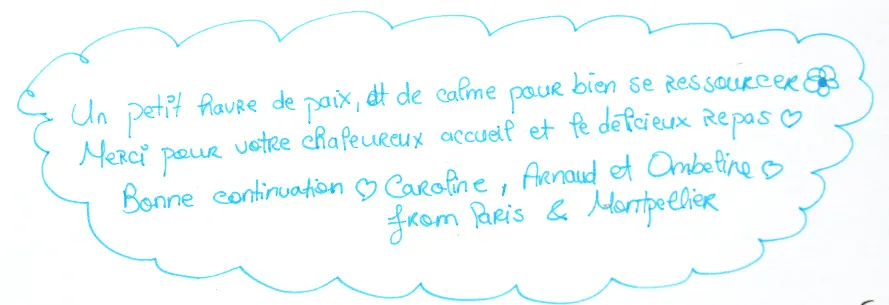 Un petit havre de paix, et de calme pour bien se ressourcer
Merci pour votre chaleureux accueil et le delicieux repas ♡
Bonne continuation ♡ Caroline, Arnaud et Ombeline ♡
from Paris & Montpellier